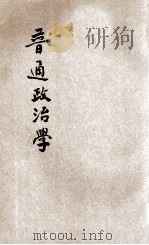 普通政治學
mtoou.info